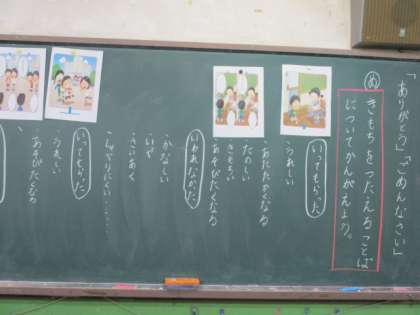 「ありがとう」「ごめんなさい」
め
きもちをつたえることば
についてかんがえよう。
いってもらった
うれしい
・あたたかくなる
たのしい
きもちいい
・あそびたくなる
いわれなかった
かなしい
いや
さいあく
いってもらった
うれしい
・あそびたくなる